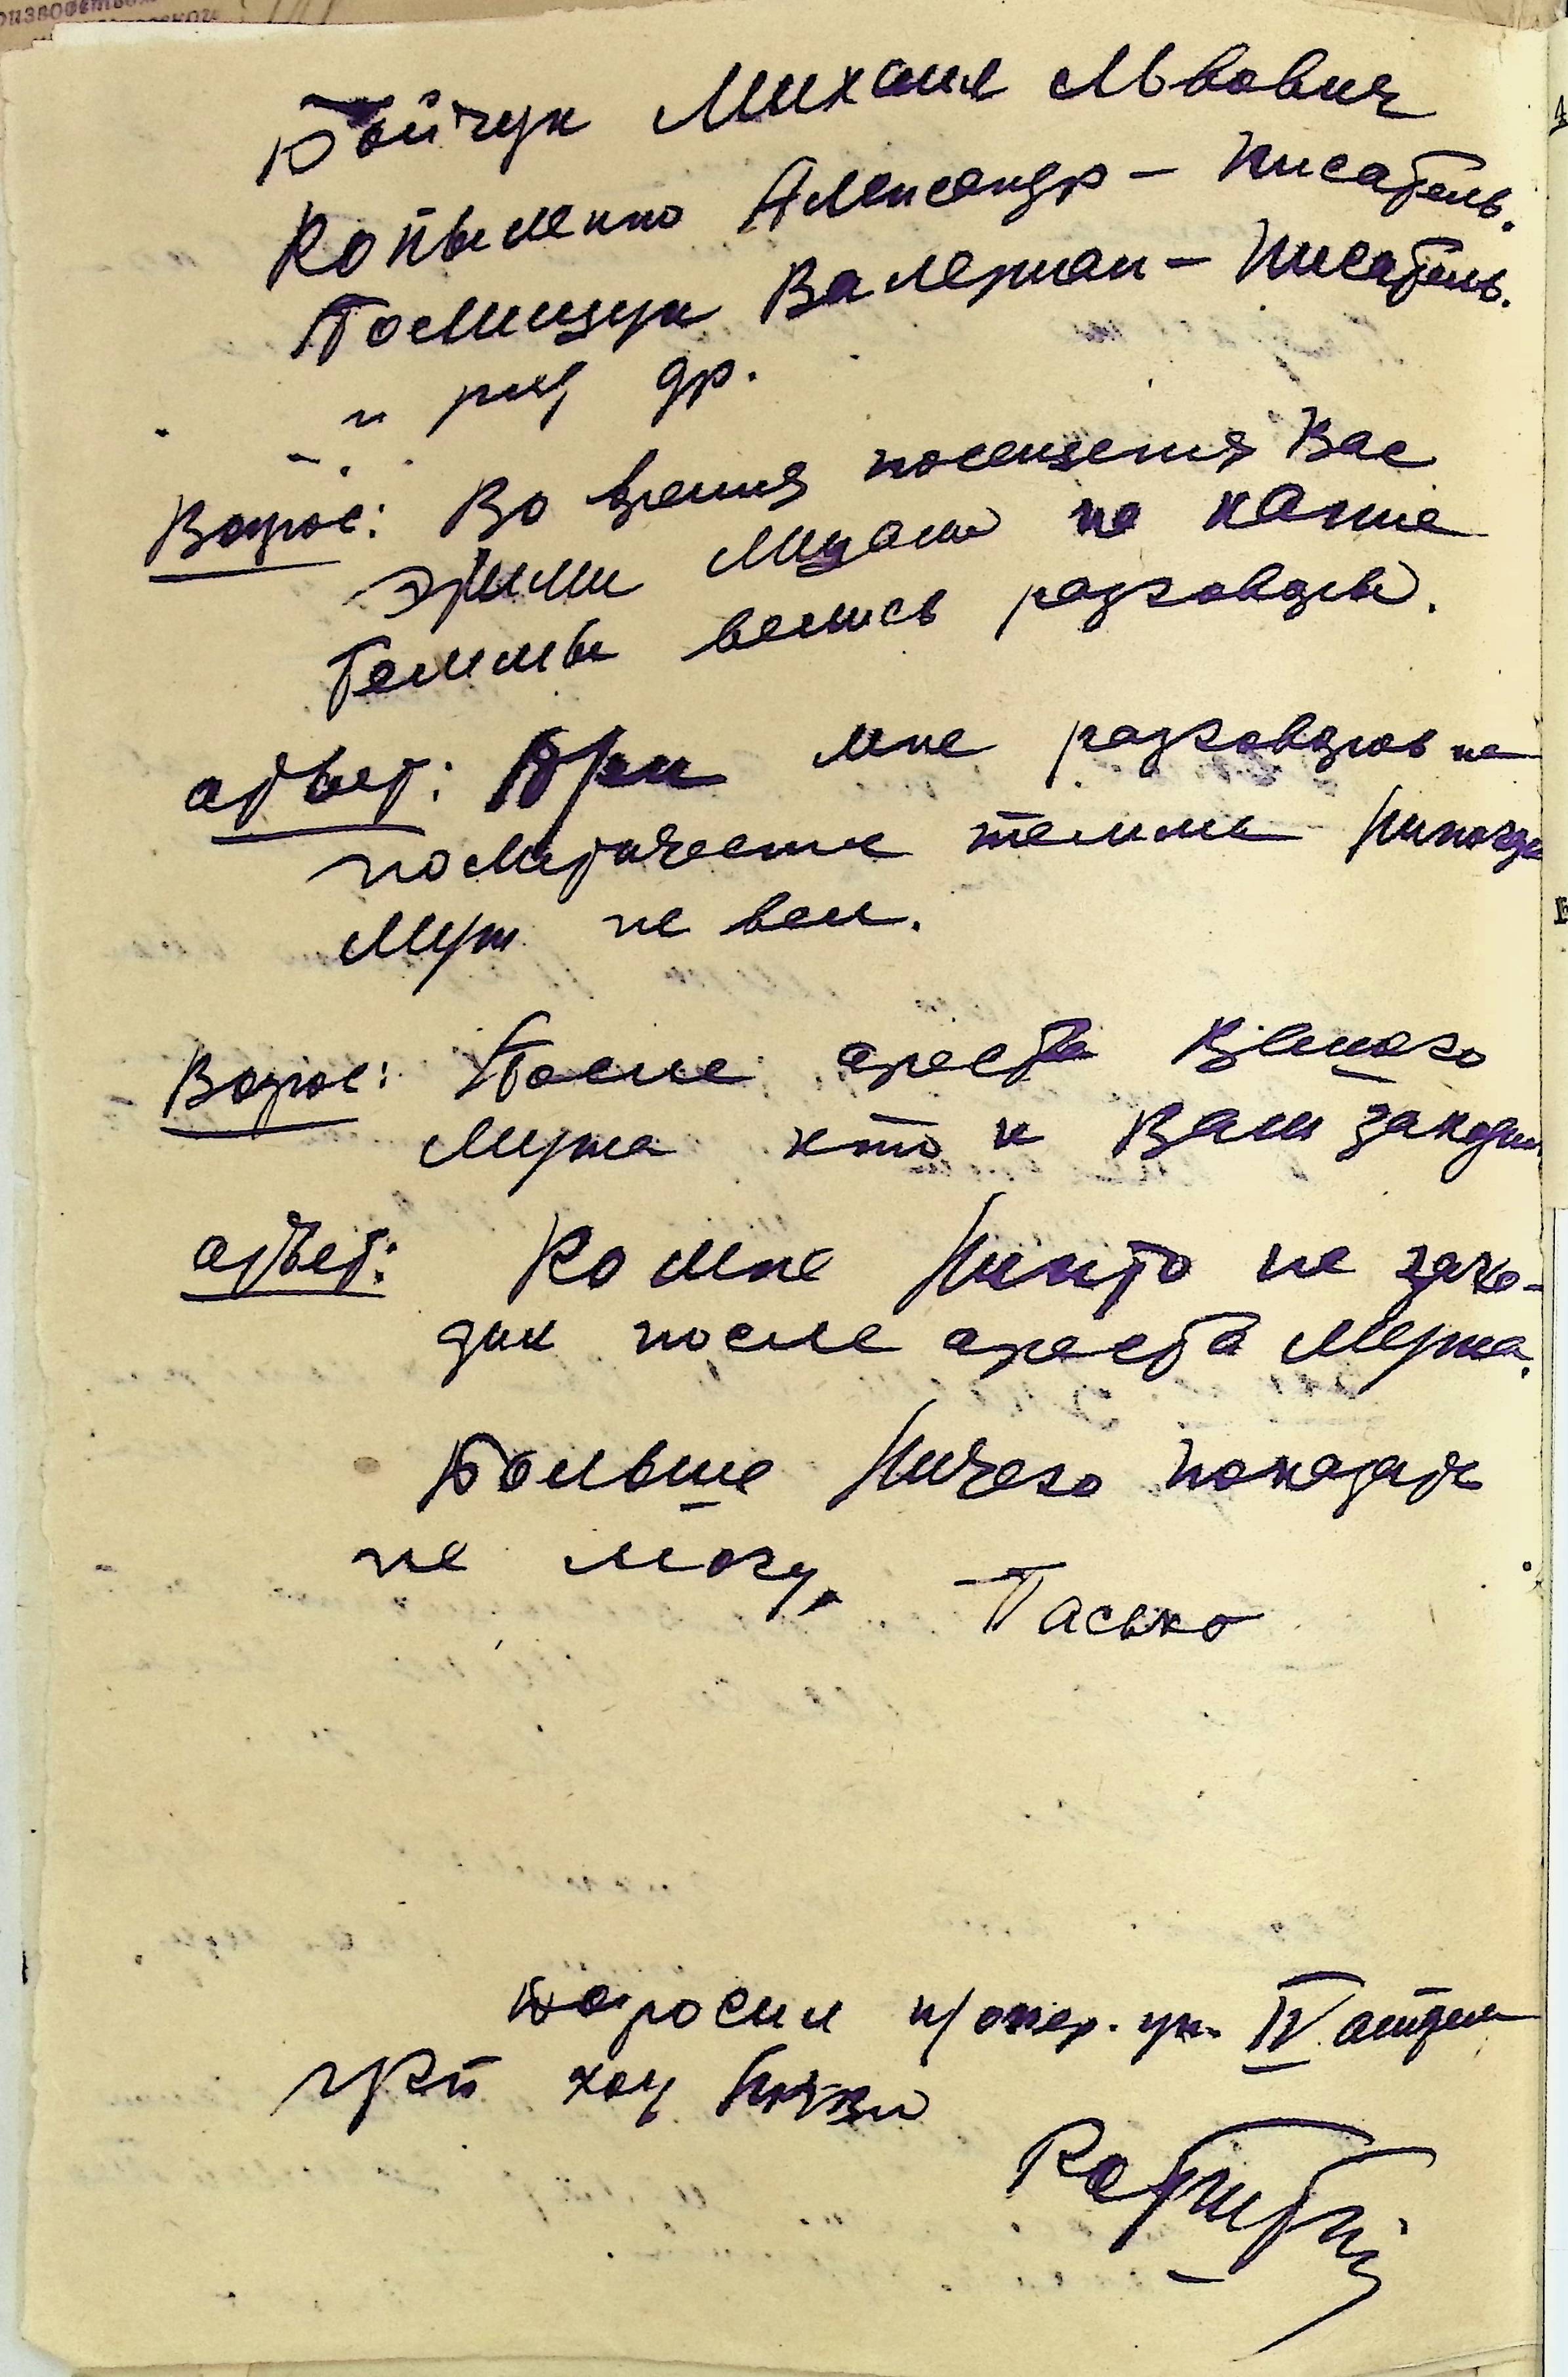 Бойчук Михаил Львович
Копыленко Александр — писатель.
Полищук Валериан — писатель.
и ряд др.
Вопрос: Во время посещения Вас
этими лицами на какие
теммы велись разговоры.
Ответ: При мне разговоров на
политические теммы никогда
муж не вел.
Вопрос: После ареста Вашего
мужа кто к Вам заходил
Ответ: Ко мне никто не захо-
дил после ареста мужа.
Больше ничего показать
не могу. Пасько
Допросил п/опер. уп. IV отдела
УГБ ХОУ НКВД